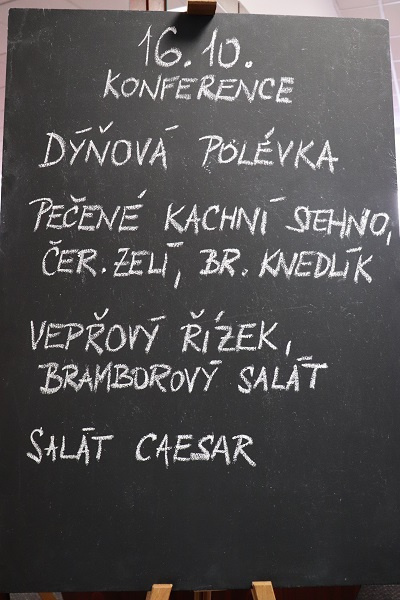 16.10.
KONFERENCE
DÝŇOVÁ POLÉVKA
PEČENÉ KACHNÍ STEHNO,
ČER. ZELÍ, BR. KNEDLÍK
VEPŘOVÝ ŘÍZEK,
BRAMBOROVÝ SALÁT
SALÁT CAESAR